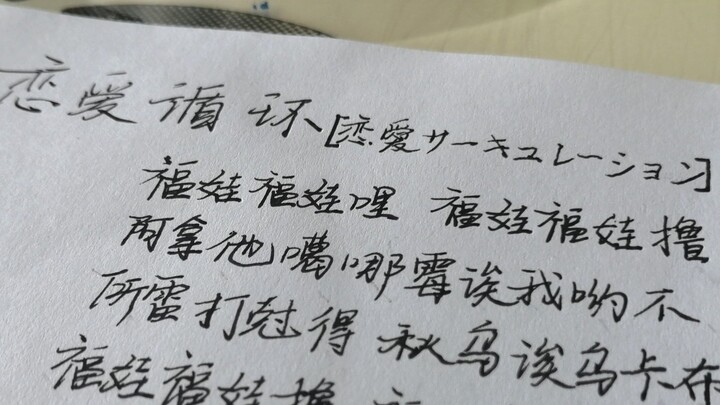 恋爱循环[恋愛サーキュレーション]
福娃福娃哩 福娃福娃撸
阿拿他噶哪霉诶我哟不
所雷打尅得 秋乌诶乌卡布
福娃福娃撸